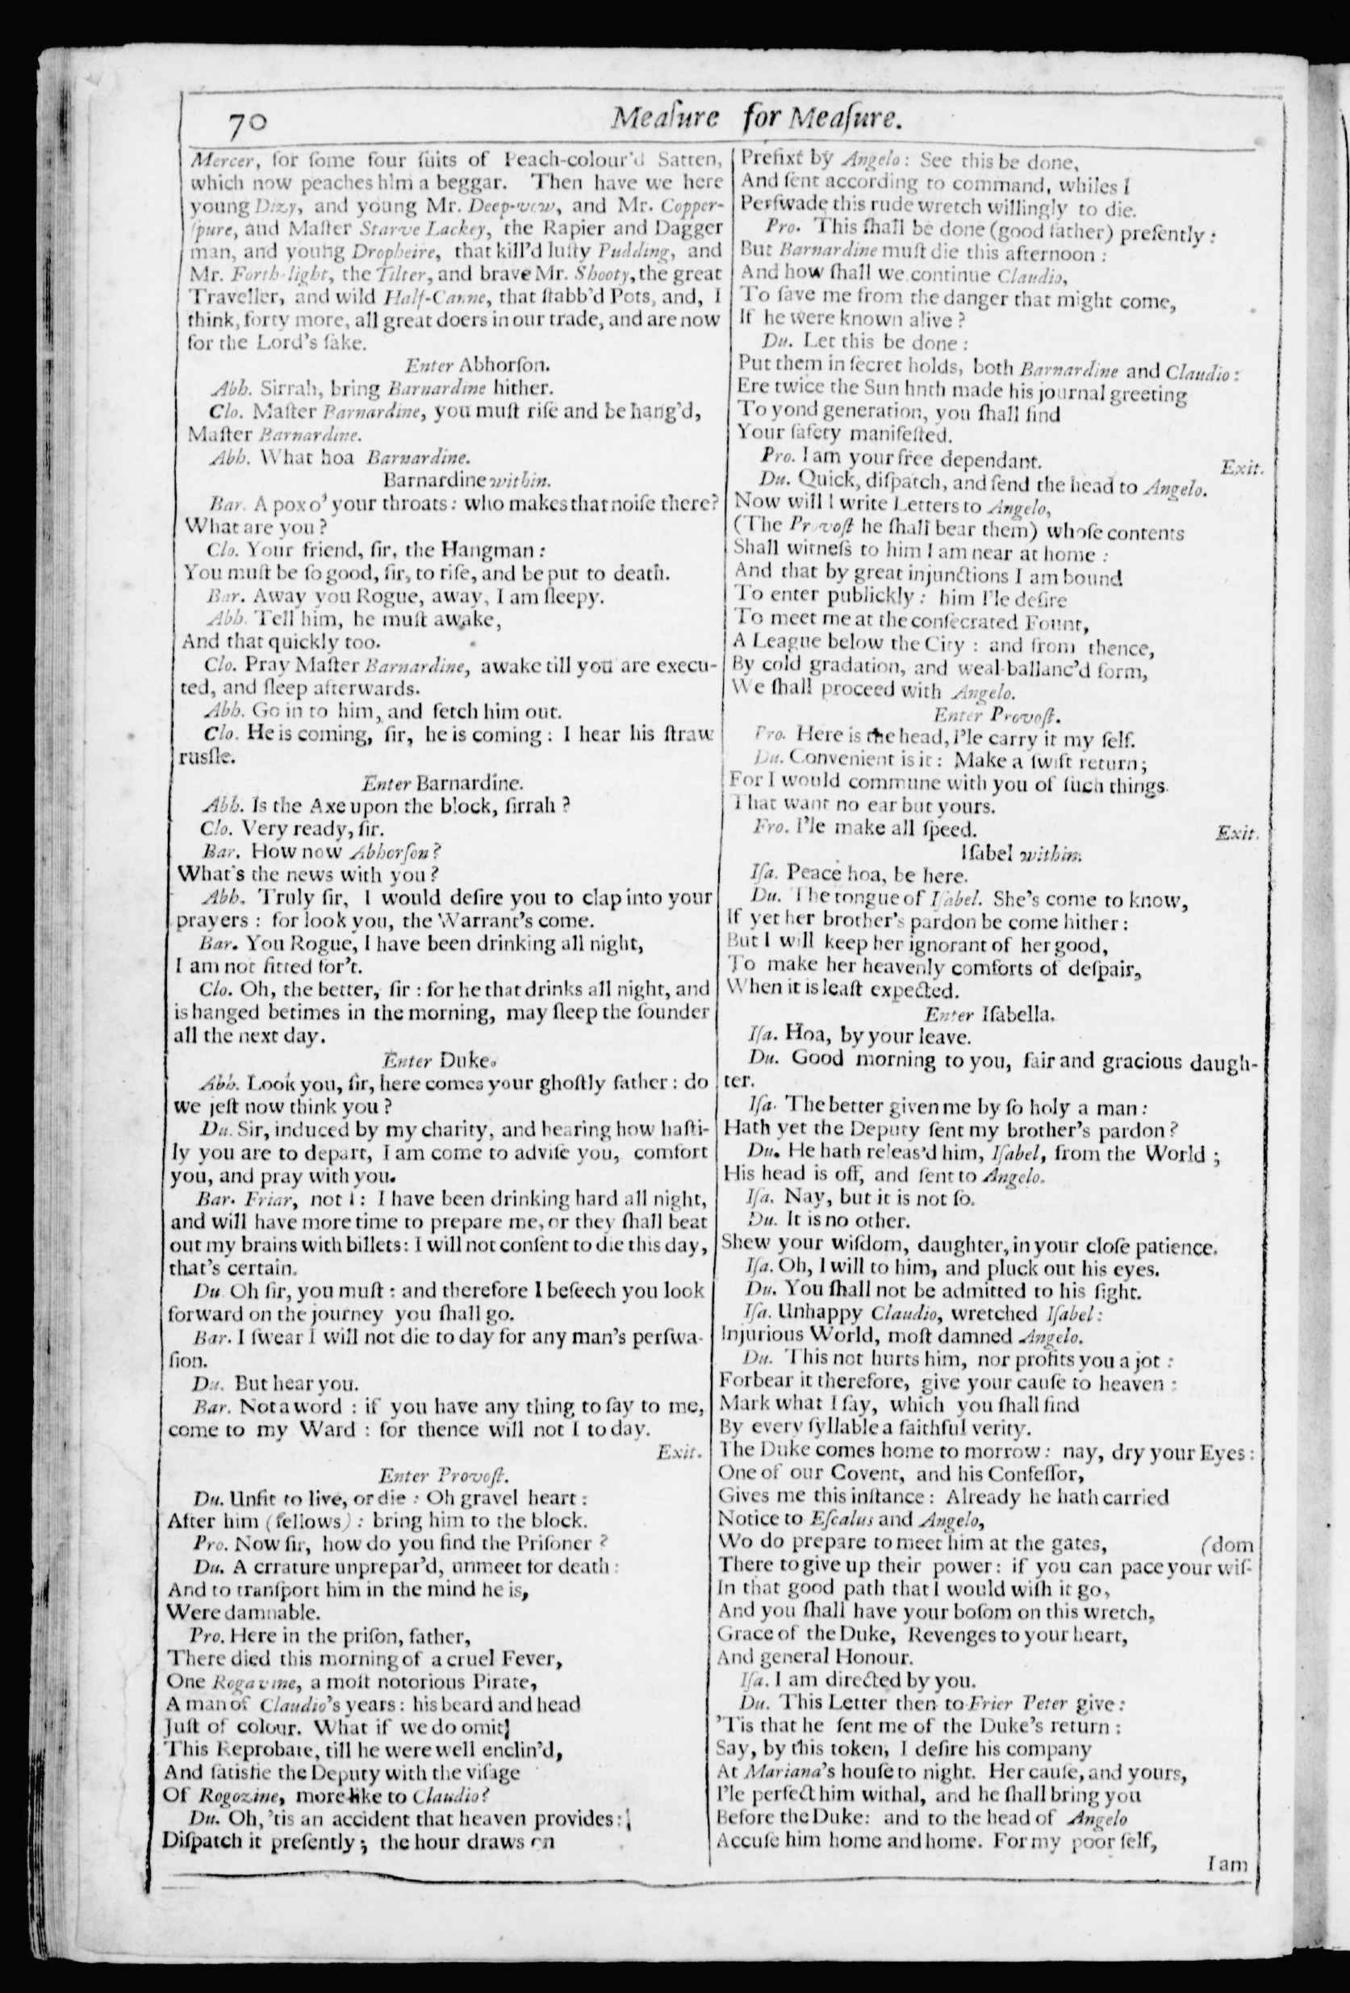 70
Meaſure for Meaſure.
Mercer, for ſome four ſuits of Peach-colour'd Satten,
which now peaches him a beggar. Then have we here
young Dizy, and young Mr. Deep-vow, and Mr. Copper-
ſpure, and Maſter Starve Lackey, the Rapier and Dagger
man, and young Dropheire, that kill'd luſty Pudding, and
Mr. Forth-light, the Tilter, and brave Mr. Shooty, the great
Traveller, and wild Half-Canne, that ſtabb'd Pots, and, I
think, forty more, all great doers in our trade, and are now
for the Lord's ſake.
Enter Abhorſon.
Abh. Sirrah, bring Barnardine hither.
Clo. Maſter Barnardine, you muſt riſe and be hang'd,
Maſter Barnardine.
Abh. What hoa Barnardine.
Barnardine within.
Bar. A pox o' your throats: who makes that noiſe there?
What are you?
Clo. Your friend, ſir, the Hangman:
You muſt be ſo good, ſir, to riſe, and be put to death.
Bar. Away you Rogue, away, I am ſleepy.
Abh. Tell him, he muſt awake,
And that quickly too.
Clo. Pray Maſter Barnardine, awake till you are execu-
ted, and ſleep afterwards.
Abh. Go in to him, and fetch him out.
Clo. He is coming, ſir, he is coming: I hear his ſtraw
ruſsle.
Enter Barnardine.
Abh. Is the Axe upon the block, ſirrah?
Clo. Very ready, ſir.
Bar. How now Abhorſon?
What's the news with you?
Abh. Truly ſir, I would deſire you to clap into your
prayers: for look you, the Warrant's come.
Bar. You Rogue, I have been drinking all night,
I am not fitted for't.
Clo. Oh, the better, ſir: for he that drinks all night, and
is hanged betimes in the morning, may ſleep the ſounder
all the next day.
Enter Duke.
Abh. Look you, ſir, here comes your ghoſtly father: do
we jeſt now think you?
Du. Sir, induced by my charity, and hearing how haſti-
ly you are to depart, I am come to adviſe you, comfort
you, and pray with you.
Bar. Friar, not I: I have been drinking hard all night,
and will have more time to prepare me, or they ſhall beat
out my brains with billets: I will not conſent to die this day,
that's certain.
Du. Oh ſir, you muſt: and therefore I beſeech you look
forward on the journey you ſhall go.
Bar. I ſwear I will not die to day for any man's perſwa-
ſion.
Du. But hear you.
Bar. Not a word: if you have any thing to ſay to me,
come to my Ward: for thence will not I to day.
Exit.
Enter Provoſt.
Du. Unfit to live, or die: Oh gravel heart:
After him (fellows): bring him to the block.
Pro. Now ſir, how do you find the Priſoner?
Du. A crrature unprepar'd, unmeet for death:
And to tranſport him in the mind he is,
Were damnable.
Pro. Here in the priſon, father,
There died this morning of a cruel Fever,
One Rogazine, a moſt notorious Pirate,
A man of Claudio's years: his beard and head
Juſt of colour. What if we do omit
This Reprobate, till he were well enclin'd,
And ſatisfie the Deputy with the viſage
Of Rogozine, more like to Claudio?
Du. Oh, 'tis an accident that heaven provides:
Diſpatch it preſently; the hour draws on
Prefixt by Angelo: See this be done,
And ſent according to command, whiles I
Perſwade this rude wretch willingly to die.
Pro. This ſhall be done (good father) preſently:
But Barnardine muſt die this afternoon:
And how ſhall we continue Claudio,
To ſave me from the danger that might come,
If he were known alive?
Du. Let this be done:
Put them in ſecret holds, both Barnardine and Claudio:
Ere twice the Sun hnth made his journal greeting
To yond generation, you ſhall find
Your ſafety manifeſted.
Pro. I am your free dependant.
Exit.
Du. Quick, diſpatch, and ſend the head to Angelo.
Now will I write Letters to Angelo,
(The Provoſt he ſhall bear them) whoſe contents
Shall witneſs to him I am near at home:
And that by great injunctions I am bound
To enter publickly: him I'le deſire
To meet me at the conſecrated Fount,
A League below the City: and from thence,
By cold gradation, and weal-ballanc'd form,
We ſhall proceed with Angelo.
Enter Provoſt.
Pro. Here is the head, I'le carry it my ſelf.
Du. Convenient is it: Make a ſwift return;
For I would commune with you of ſuch things
That want no ear but yours.
Pro. I'le make all ſpeed.
Exit.
Iſabel within.
Iſa. Peace hoa, be here.
Du. The tongue of Iſabel. She's come to know,
If yet her brother's pardon be come hither:
But I will keep her ignorant of her good,
To make her heavenly comforts of deſpair,
When it is leaſt expected.
Enter Iſabella.
Iſa. Hoa, by your leave.
Du. Good morning to you, fair and gracious daugh-
ter.
Iſa. The better given me by ſo holy a man:
Hath yet the Deputy ſent my brother's pardon?
Du. He hath releas'd him, Iſabel, from the World;
His head is off, and ſent to Angelo.
Iſa. Nay, but it is not ſo.
Du. It is no other.
Shew your wiſdom, daughter, in your cloſe patience.
Iſa. Oh, I will to him, and pluck out his eyes.
Du. You ſhall not be admitted to his ſight.
Iſa. Unhappy Claudio, wretched Iſabel:
Injurious World, moſt damned Angelo.
Du. This not hurts him, nor profits you a jot:
Forbear it therefore, give your cauſe to heaven:
Mark what I ſay, which you ſhall find
By every ſyllable a faithful verity.
The Duke comes home to morrow: nay, dry your Eyes:
One of our Covent, and his Confeſſor,
Gives me this inſtance: Already he hath carried
Notice to Eſcalus and Angelo,
Wo do prepare to meet him at the gates, (dom
There to give up their power: if you can pace your wiſ-
In that good path that I would wiſh it go,
And you ſhall have your boſom on this wretch,
Grace of the Duke, Revenges to your heart,
And general Honour.
Iſa. I am directed by you.
Du. This Letter then to Frier Peter give:
'Tis that he ſent me of the Duke's return:
Say, by this token, I deſire his company
At Mariana's houſe to night. Her cauſe, and yours,
I'le perfect him withal, and he ſhall bring you
Before the Duke: and to the head of Angelo
Accuſe him home and home. For my poor ſelf,
I am